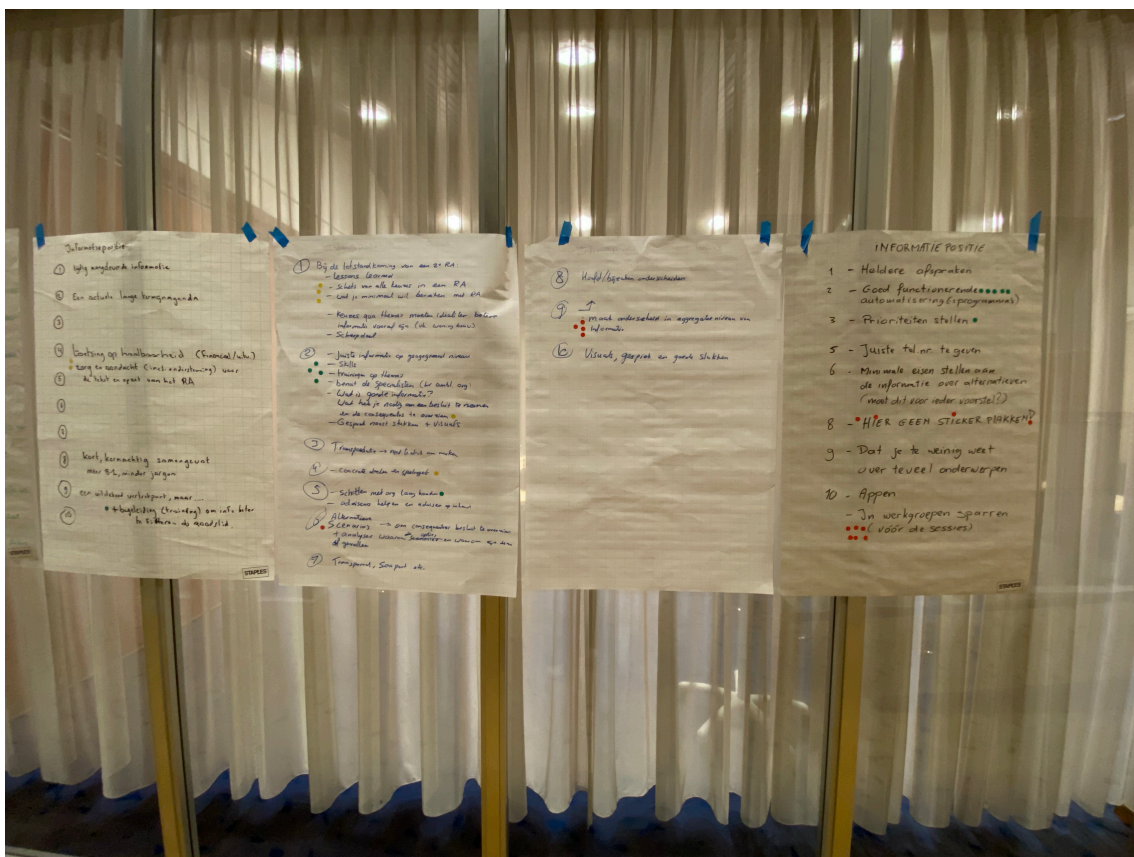 Informatiepositie
① tijdig aangeleverde informatie
② Een actuele lange termijnagenda
③
④ toetsing op haalbaarheid (financieel/
zorg en aandacht (incl. ondersteuning) voor
⑤ de tekst en opzet van het RA
⑥
⑦
⑧ kort, kernachtig samengevat
meer B1, minder jargon
⑨ een uitstekend vertrekpunt, maar
⑩ + begeleiding (training) om info beter
te filteren
STAPLES
STAPLES
① Bij de totstandkoming van een RA:
- Lessons learned
- Schets van alle keuzes in een RA
- wat je minimaal wil bereiken met RA
- Keuzes qua thema's moeten idealiter
informatie vooraf zijn
② - Juiste informatie op geaggregeerd niveau
- Skills
- trainingen op thema's
- benut de specialisten
- Wat is goede informatie?
Wat heb je nodig om een besluit te nemen
en de consequenties te overzien
- Gesprek naast stukken + visuals
③
④ - concrete doelen
⑤
- adviseurs helpen en adviseren
⑥ Alternatieve
Scenario's → om consequenties besluit te overzien
+ analyse waarom en waarom
gevallen
⑦ Transparant,
⑧ Hoofd/bijzaken onderscheiden
⑨ ↑
- maak onderscheid in aggregatie niveau van
informatie
⑩ Visuals, gesprek en goede stukken
INFORMATIE POSITIE
1 - Heldere afspraken
2 - Goed functionerende
automatisering (programma's)
3 - Prioriteiten stellen
5 - Juiste tel.nr. te geven
6 - Minimale eisen stellen aan
de informatie over alternatieven
(moet dit voor ieder voorstel?)
8 - HIER GEEN STICKER PLAKKEN!
9 - Dat je te weinig weet
over teveel onderwerpen
10 - Appen
- In werkgroepen sparren
(vóór de sessies)
STAPLES